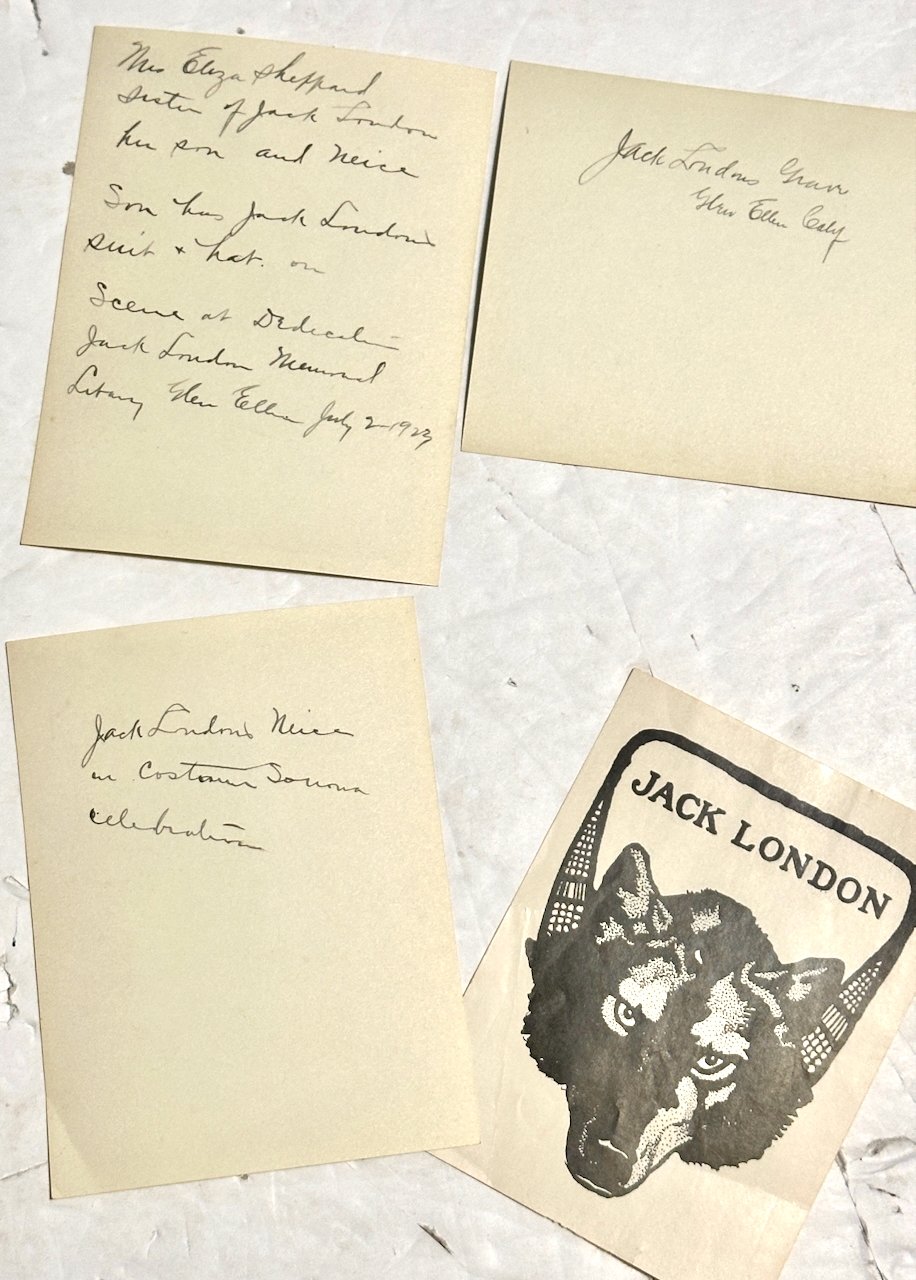 Mrs Eliza Sheppard
Sister of Jack London
her son and Neice
Son has Jack London's
suit + hat. on
Scene at Dedication
Jack London Memorial
Library Glen Ellen July 2-1923
Jack Londons Grave
Glen Ellen Calif
Jack London's Neice
in Costume Sonoma
celebration
JACK LONDON